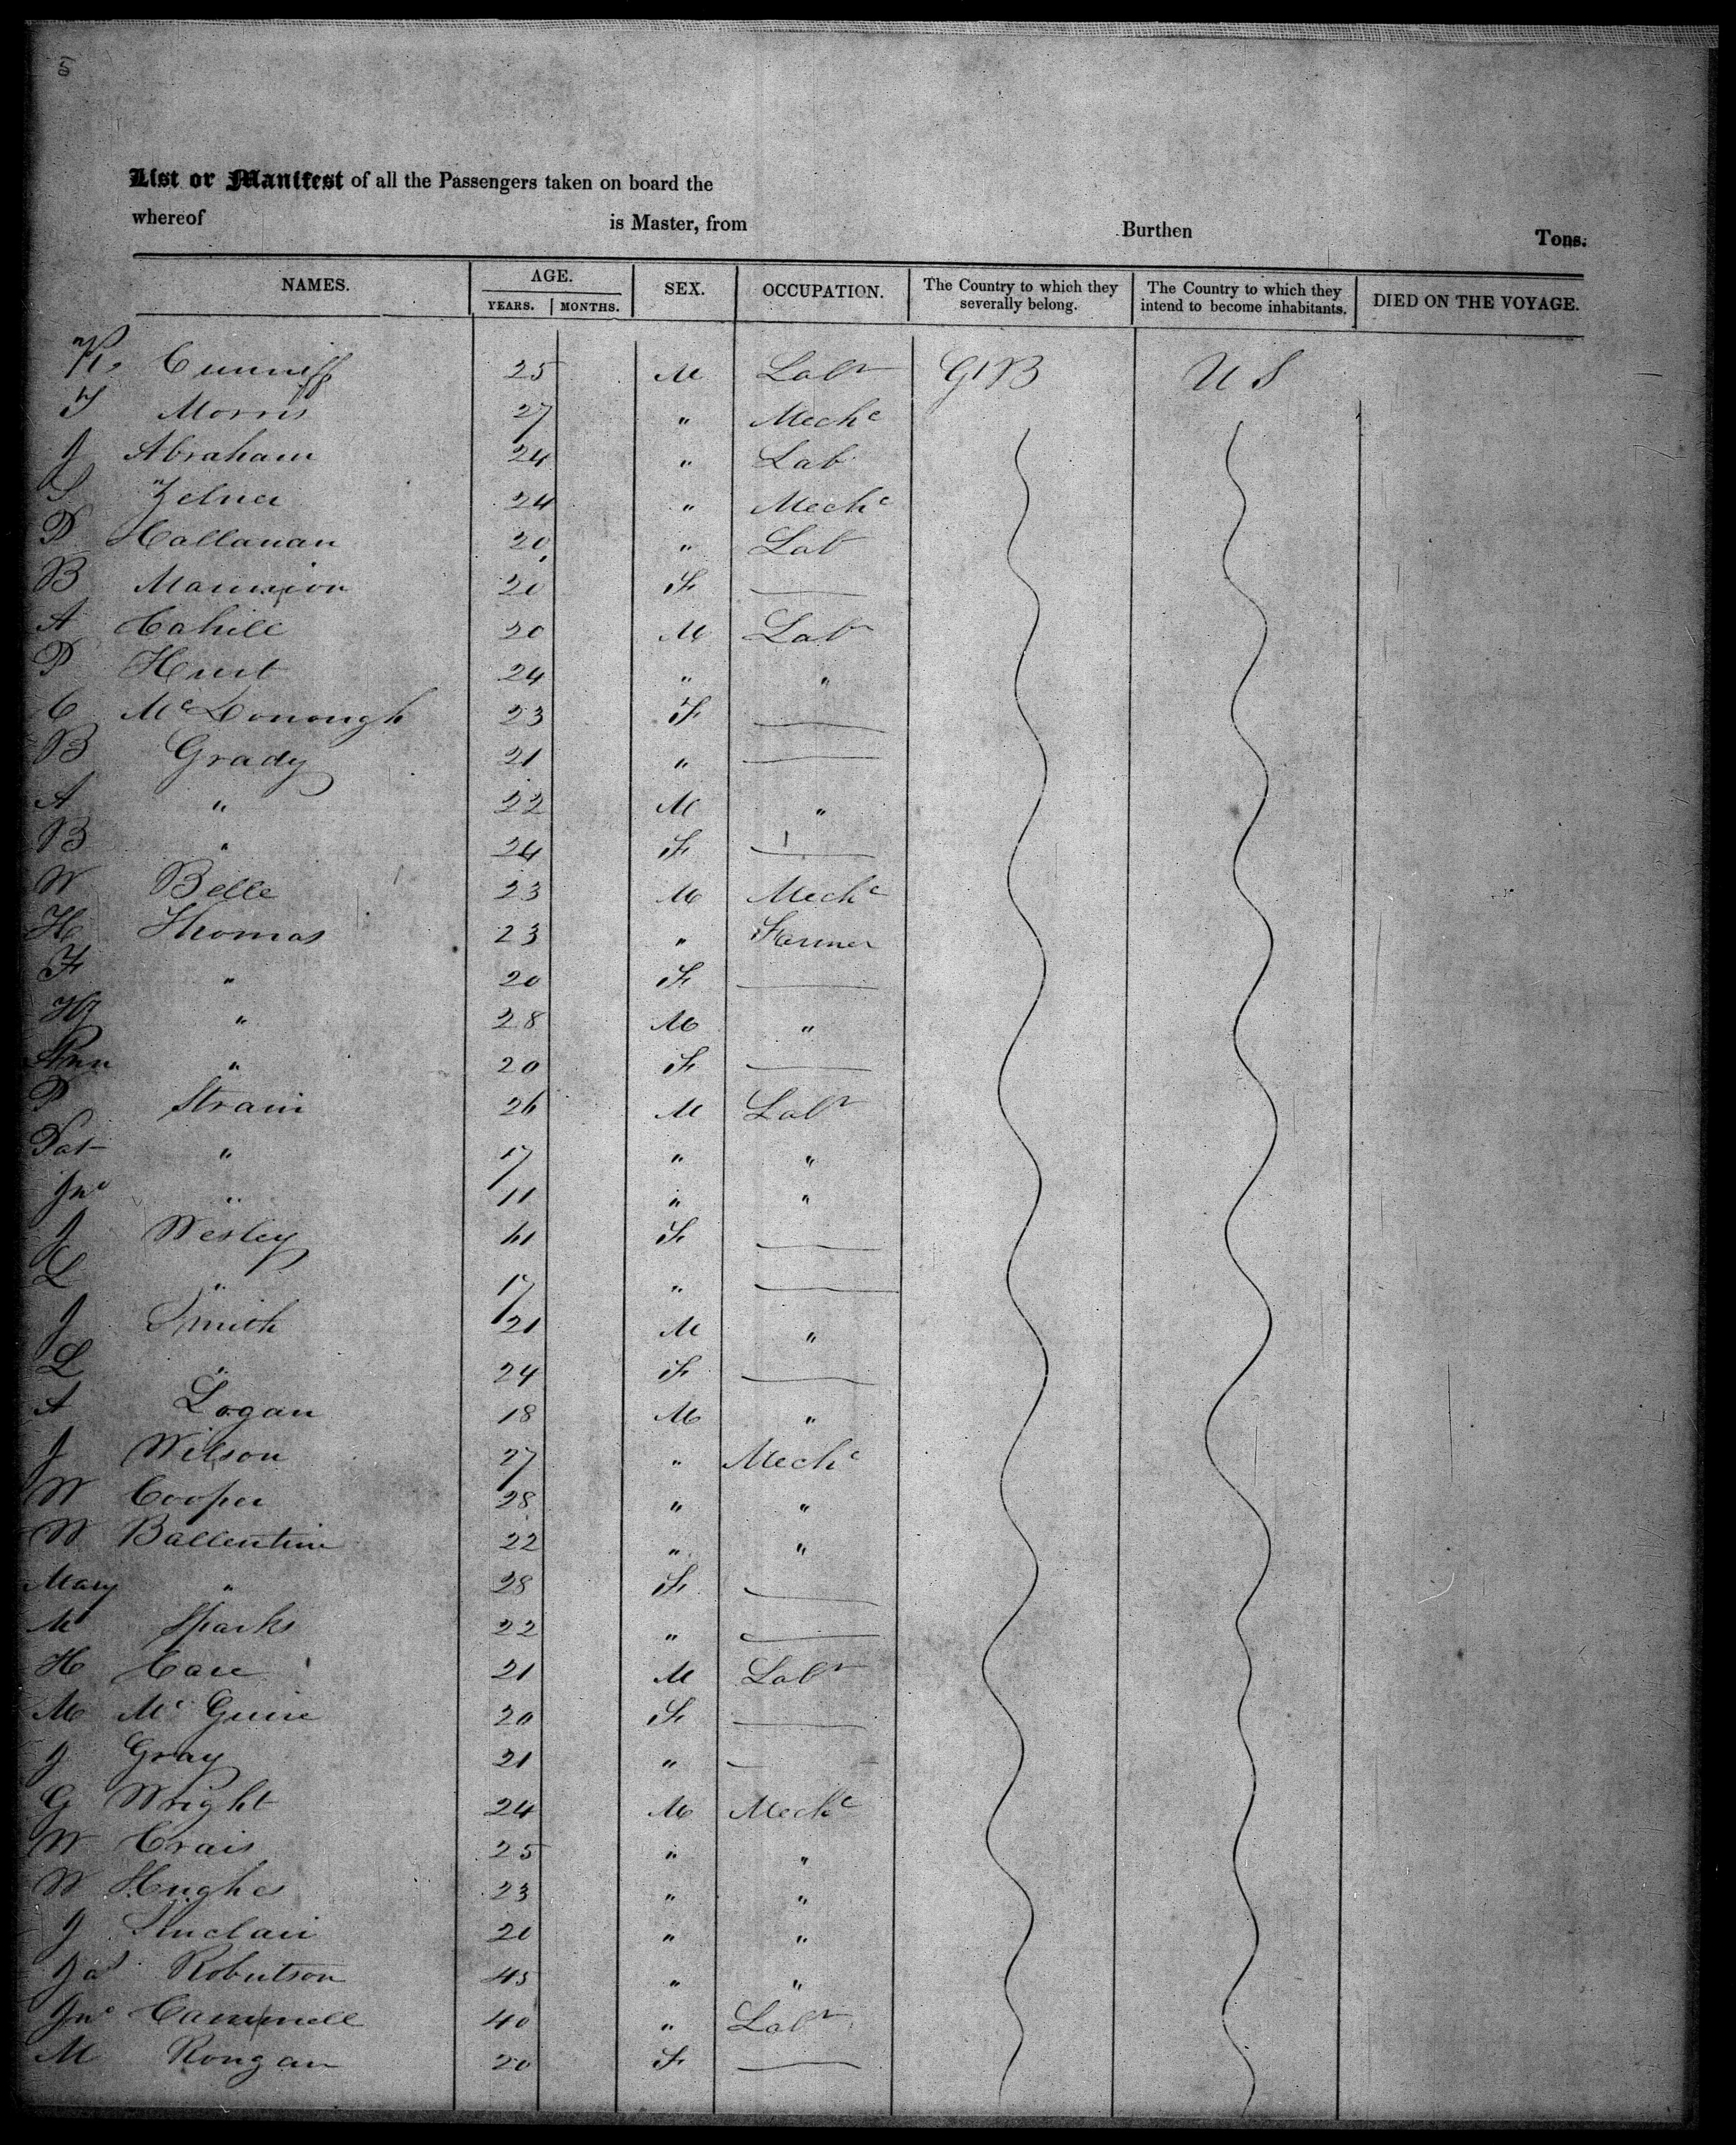 5
List or Manifest of all the Passengers taken on board the
whereof is Master, from Burthen Tons.
NAMES. AGE. SEX. OCCUPATION. The Country to which they severally belong. The Country to which they intend to become inhabitants. DIED ON THE VOYAGE.
YEARS. MONTHS.
Cunniff 25 M Labr GtB U S
T Morris 27 " Mechc
J Abraham 24 " Lab
S Zelner 24 " Mechc
P Hallanan 20 " Lab
B Mannion 20 F —
A Cahill 20 M Labr
P Hunt 24 " "
C McDonough 23 F —
B Grady 21 " —
A " 22 M "
B " 24 F —
W Belle 23 M Mechc
H Thomas 23 " Farmer
F " 20 F —
Hy " 28 M "
Ann " 20 F —
P Strain 26 M Labr
Pat " 17 " "
Jno " 11 " "
J Wesley F —
L " 17 " —
J Smith 21 M "
L " 24 F —
A Logan 18 M "
J Wilson 27 " Mechc
W Cooper 28 " "
W Ballentine 22 " "
Mary " 28 F —
M Sparks 22 " —
H Care 21 M Labr
M McGuire 20 F —
J Gray 21 " —
G Wright 24 M Mechc
W Crais 25 " "
W Hughes 23 " "
J Sinclair 20 " "
Jas Robertson 45 " "
Jno Cammell 40 " Labr
M Rongan 20 F —